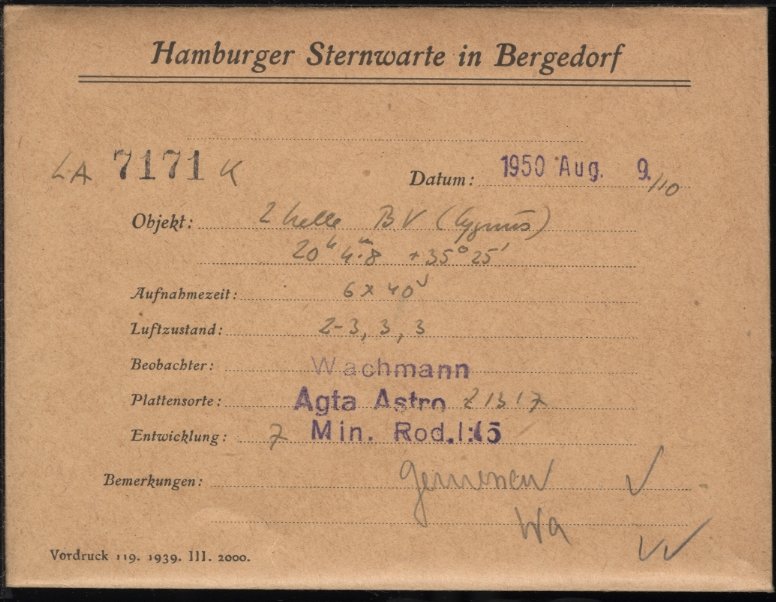 Hamburger Sternwarte in Bergedorf
LA 7171 K
Datum: 1950 Aug. 9./10
Objekt: 2 helle BV (Cygnus)
20ʰ 4ᵐ.8 +35° 25'
Aufnahmezeit: 6 x 40ˢ
Luftzustand: 2-3, 3, 3
Beobachter: Wachmann
Plattensorte: Agfa Astro
Entwicklung: 7 Min. Rod.1:15
Bemerkungen: gemessen √
Wa √√
Vordruck 119. 1939. III. 2000.